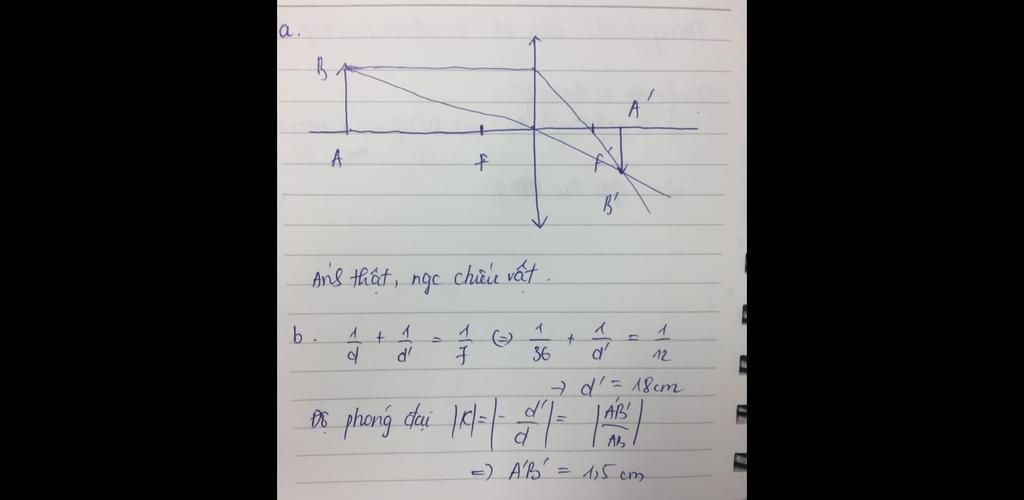 a.
B
A'
A
F
F'
B'
Ảnh thật, ngc chiều vật.
b. 1/d + 1/d' = 1/f (=) 1/36 + 1/d' = 1/12
→ d' = 18cm
Độ phóng đại |K| = |- d'/d| = |A'B'/AB|
=) A'B' = 1,5 cm